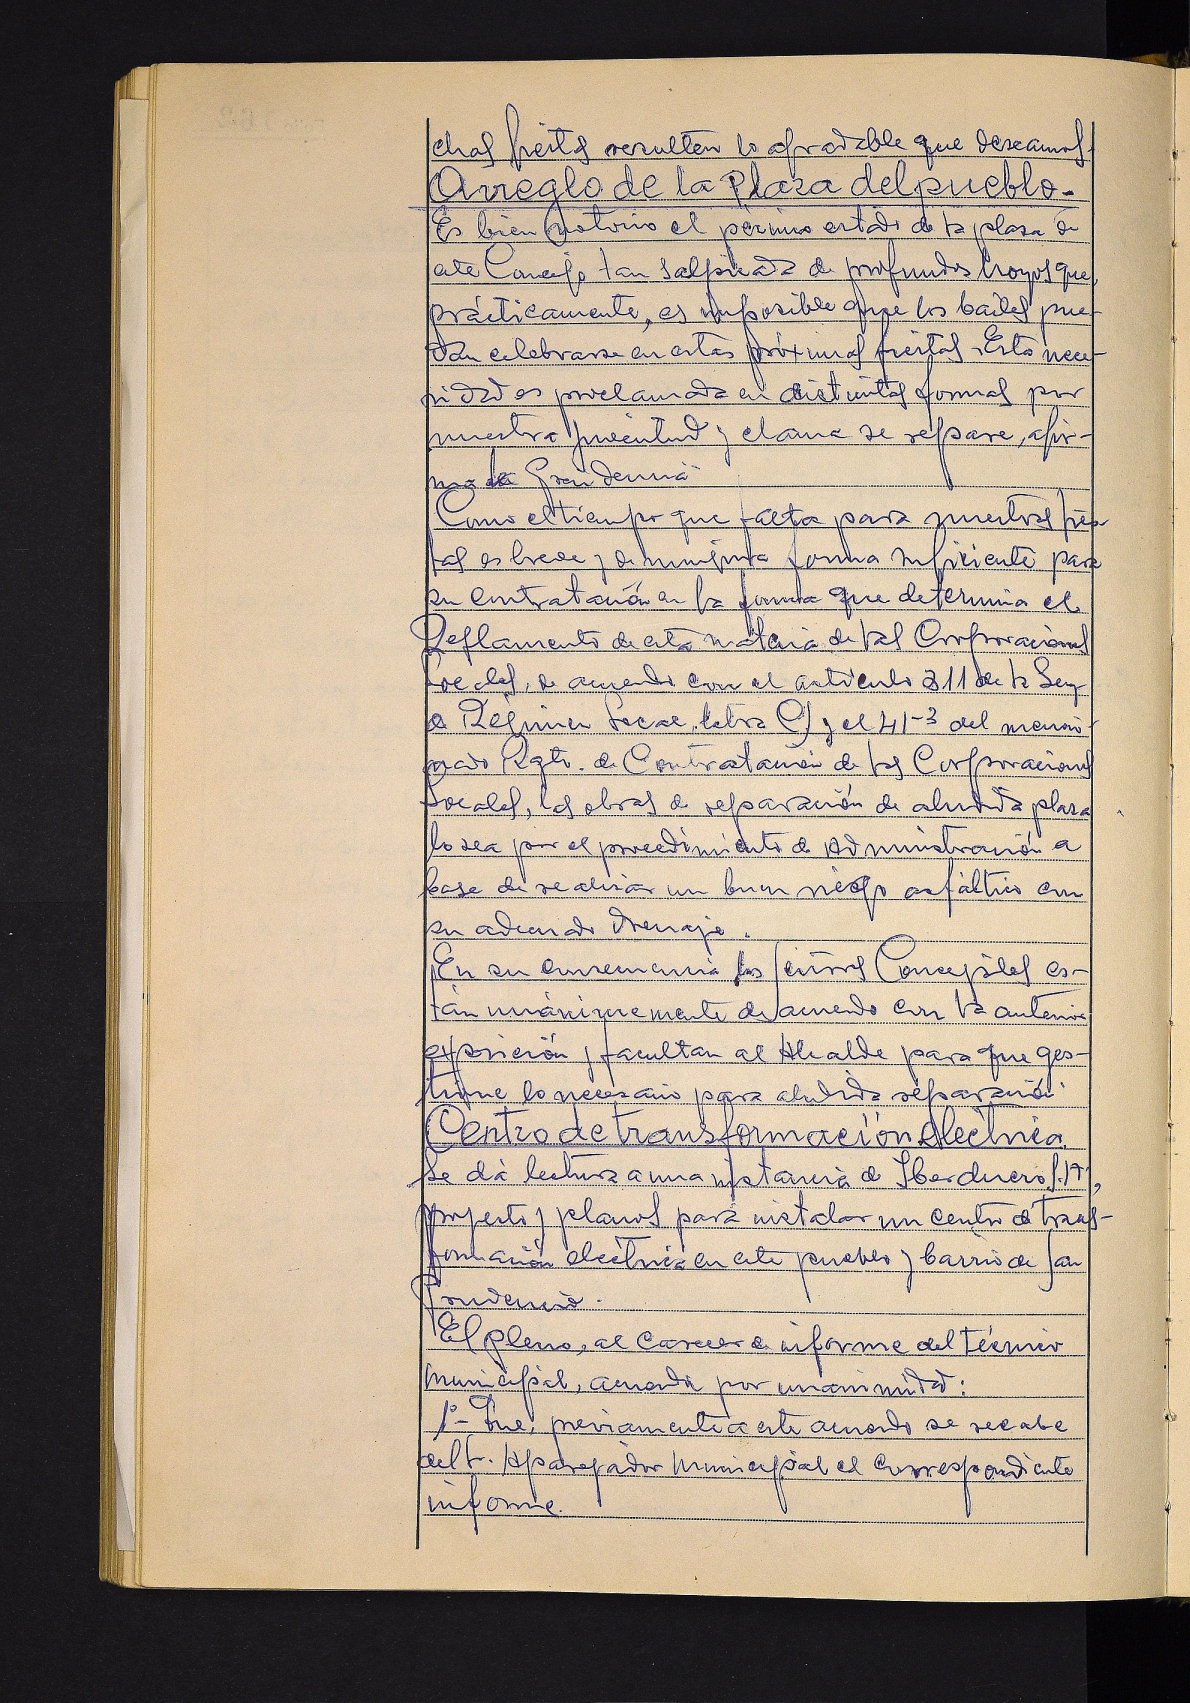 chas fiestas resulten lo agradable que deseamos.
Arreglo de la Plaza del pueblo.-
Es bien notorio el pésimo estado de la plaza de
este Concejo, tan salpicada de profundos hoyos que,
prácticamente, es imposible que los bailes pue-
dan celebrarse en estas próximas fiestas. Esta nece-
sidad es proclamada en distintas formas por
nuestra juventud y clama se repare, afir-
ma la
Como el tiempo que falta para nuestras fies-
tas es breve y de ninguna forma suficiente para
su contratación en la forma que determina el
Reglamento de esta materia de las Corporaciones
Locales, de acuerdo con el artículo 311 de la Ley
de Régimen Local, letra C) y el 41-3 del mencio-
nado Rgto. de Contratación de las Corporaciones
Locales, las obras de reparación de aludida plaza
lo sea por el procedimiento de Administración a
base de realizar un buen riego asfáltico con
su adecuado drenaje.
En su consecuencia los señores Concejales es-
tán unánimemente de acuerdo con la anterior
exposición y facultan al Alcalde para que ges-
tione lo necesario para aludida reparación.
Centro de transformación eléctrica.
Se dá lectura a una instancia de Iberduero S.A.,
proyecto y planos para instalar un centro de trans-
formación eléctrica en este pueblo y barrio de San
Prudencio.
El pleno, al carecer de informe del técnico
municipal, acuerda por unanimidad:
1º- Que, previamente a este acuerdo se recabe
del Sr. Aparejador Municipal el correspondiente
informe.